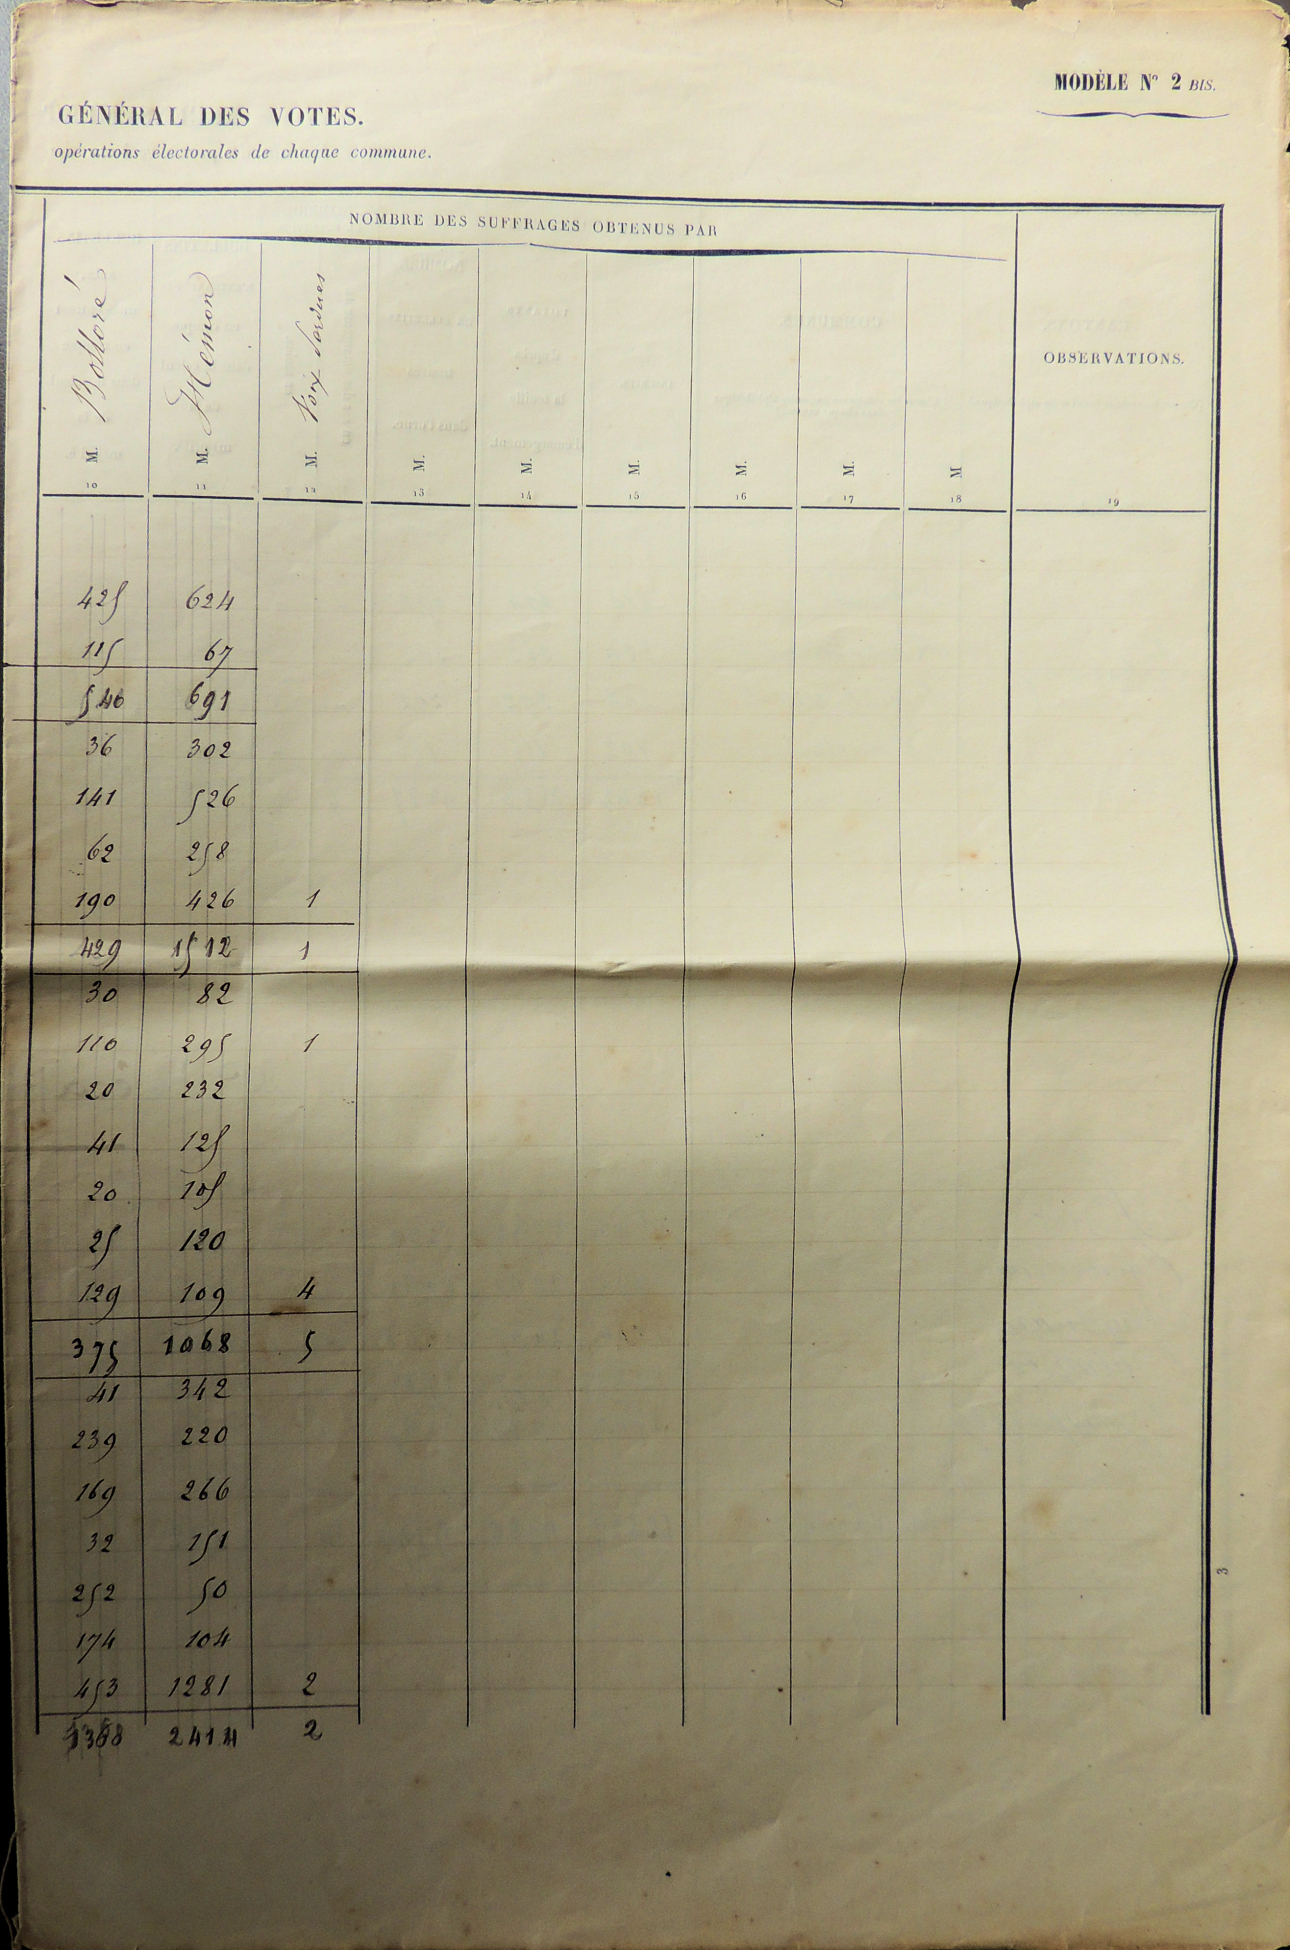 MODÈLE N° 2 BIS.
GÉNÉRAL DES VOTES.
opérations électorales de chaque commune.
NOMBRE DES SUFFRAGES OBTENUS PAR
M. Bolloré
M. Hémon
M. Voix perdues
M.
M.
M.
M.
M.
M
OBSERVATIONS.
10 11 12 13 14 15 16 17 18 19
425 624
115 67
540 691
36 302
141 526
62 258
190 426 1
429 1512 1
30 82
110 295 1
20 232
41 125
20 105
25 120
129 109 4
375 1068 5
41 342
239 220
169 266
32 151
252 50
174 104
453 1281 2
2414 2
3